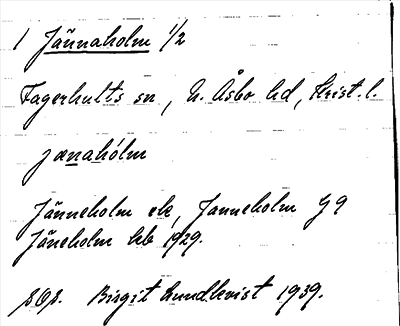 1 Jännaholm 1/2
Fagerhults sn, N. Åsbo hd, Krist. l.
jænahólm
Jänneholm ek, Janneholm G 9
Jäneholm kb 1929.
Birgit Lundkvist 1939.